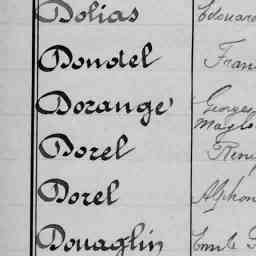 Dolias Edouard
Donotel Fran
Dorange Georges
Dorel René
Dorel Alphon
Douaglin Emile